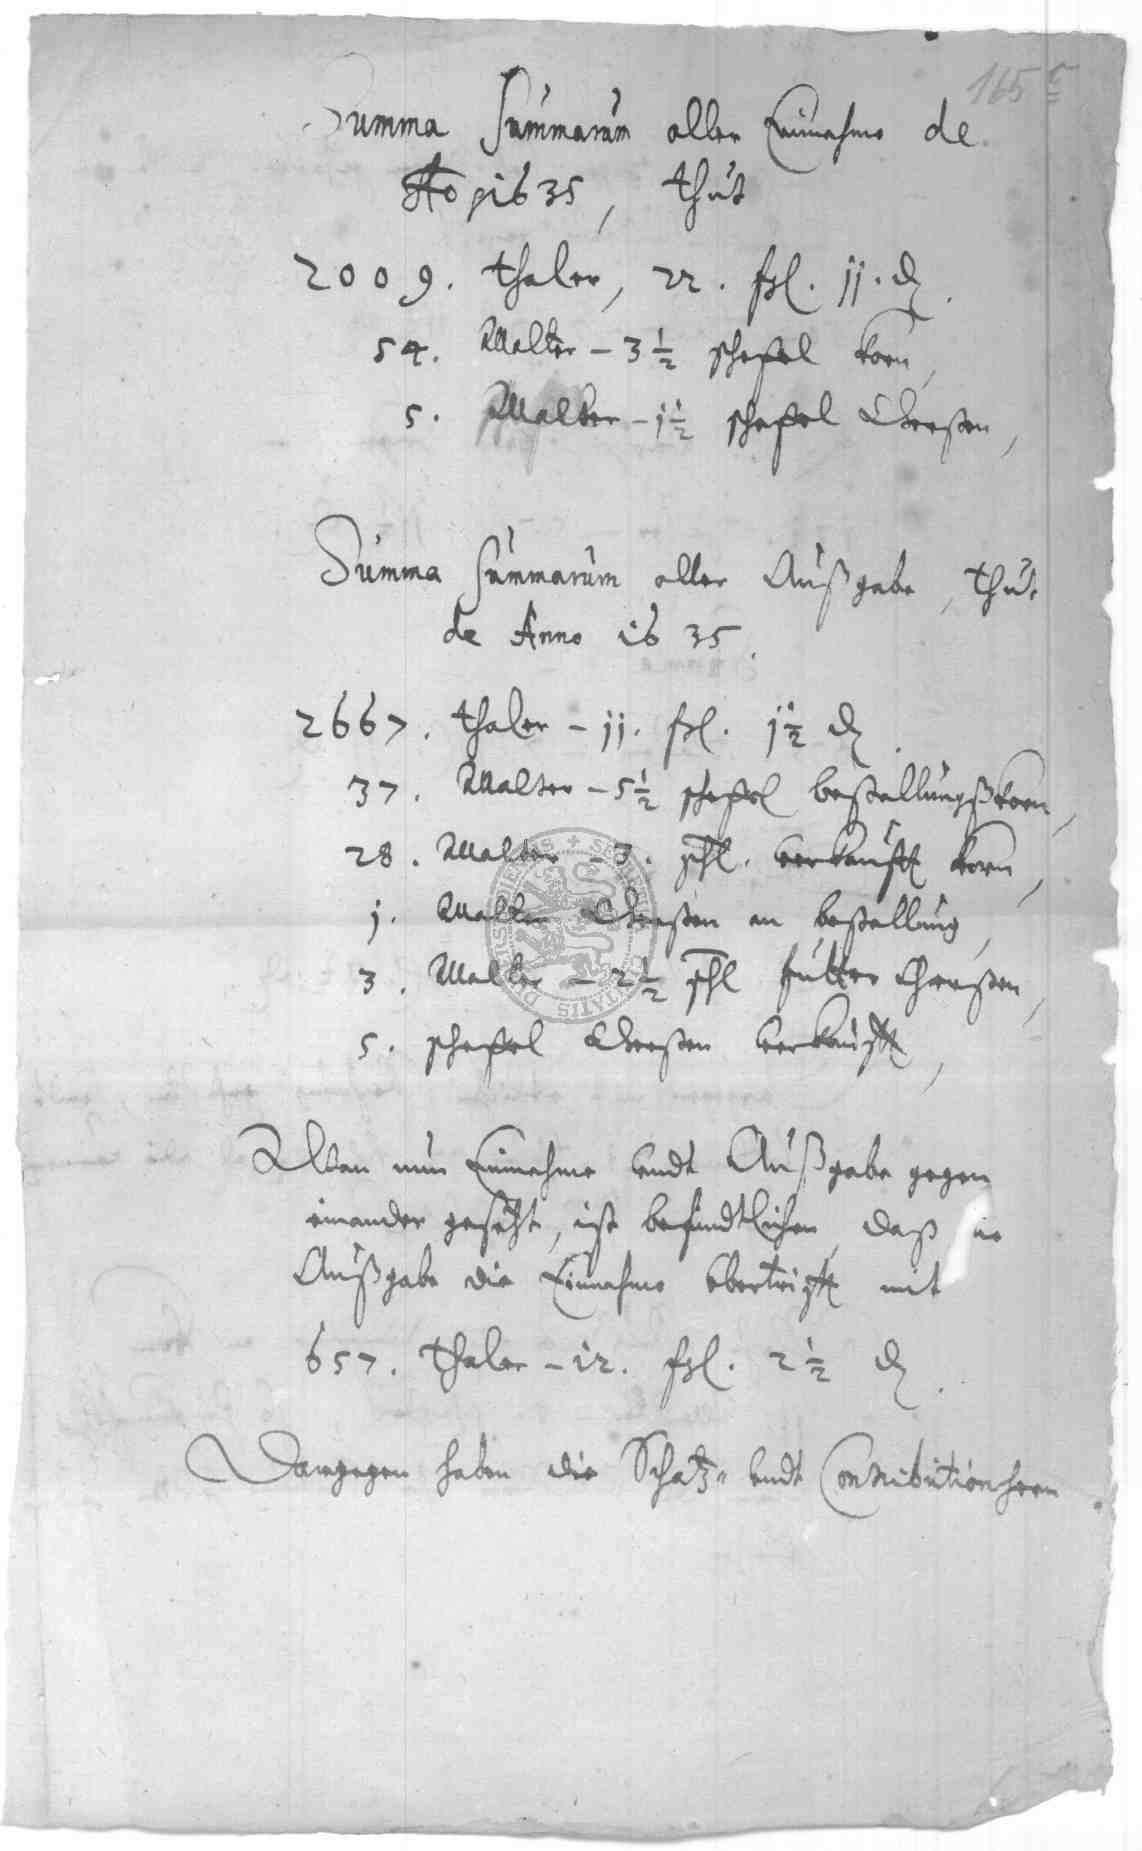 165
Summa Summarum aller Einnahme de
Ao 1635, thut
2009. thaler, 22. ßl. 11. d.
54. Malter – 3 1/2 scheffel korn,
5. Malter – 1 1/2 scheffel Gersten,
Summa Summarum aller Außgabe, thut
de Anno 1635.
2667. thaler – 11. ßl. 1 1/2 d.
37. Malter – 5 1/2 scheffel bestallungßkorn,
28. Malter – 3. schl. verkaufft korn,
1. Malter Gersten an bestallung,
3. Malter – 2 1/2 schl futter Gersten,
5. scheffel Gersten verkaufft,
Wan nun Einnahme undt Außgabe gegen
einander gesetzt, ist befindtlichen, daß die
Außgabe die Einnahme übertrifft mit
657. thaler – 12. ßl. 2 1/2 d.
Dargegen haben die Schatz- undt Contributionhern